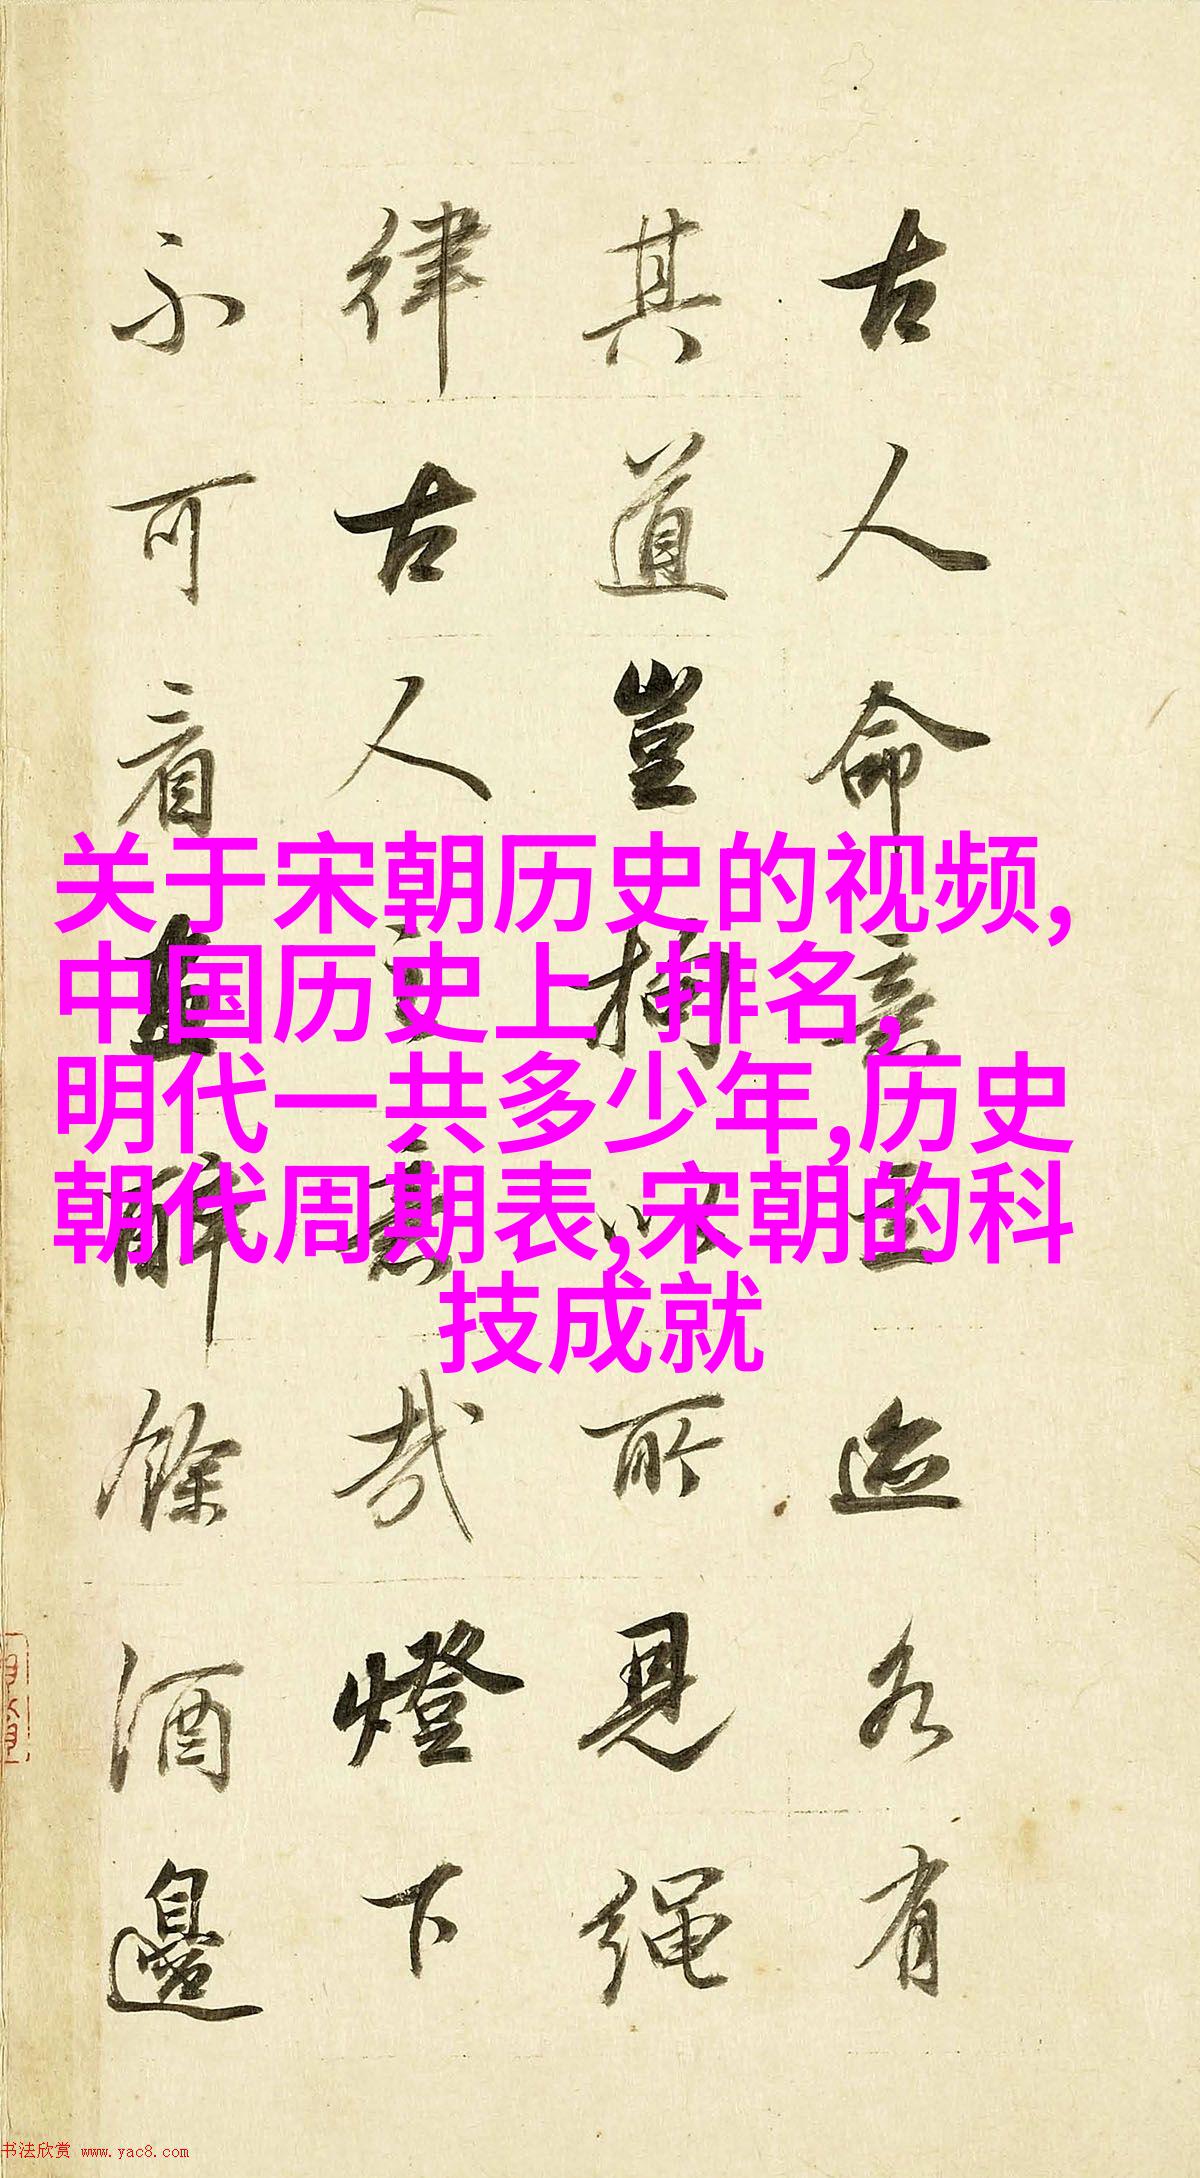 关于宋朝历史的视频,
中国历史上 排名,
明代一共多少年,历史
朝代周期表,宋朝的科
技成就
古人命意立迹各有
其道豈拘以所見繩
律古人之意哉燈下
不可看畫醉餘酒邊
书法欣赏 www.yac8.com